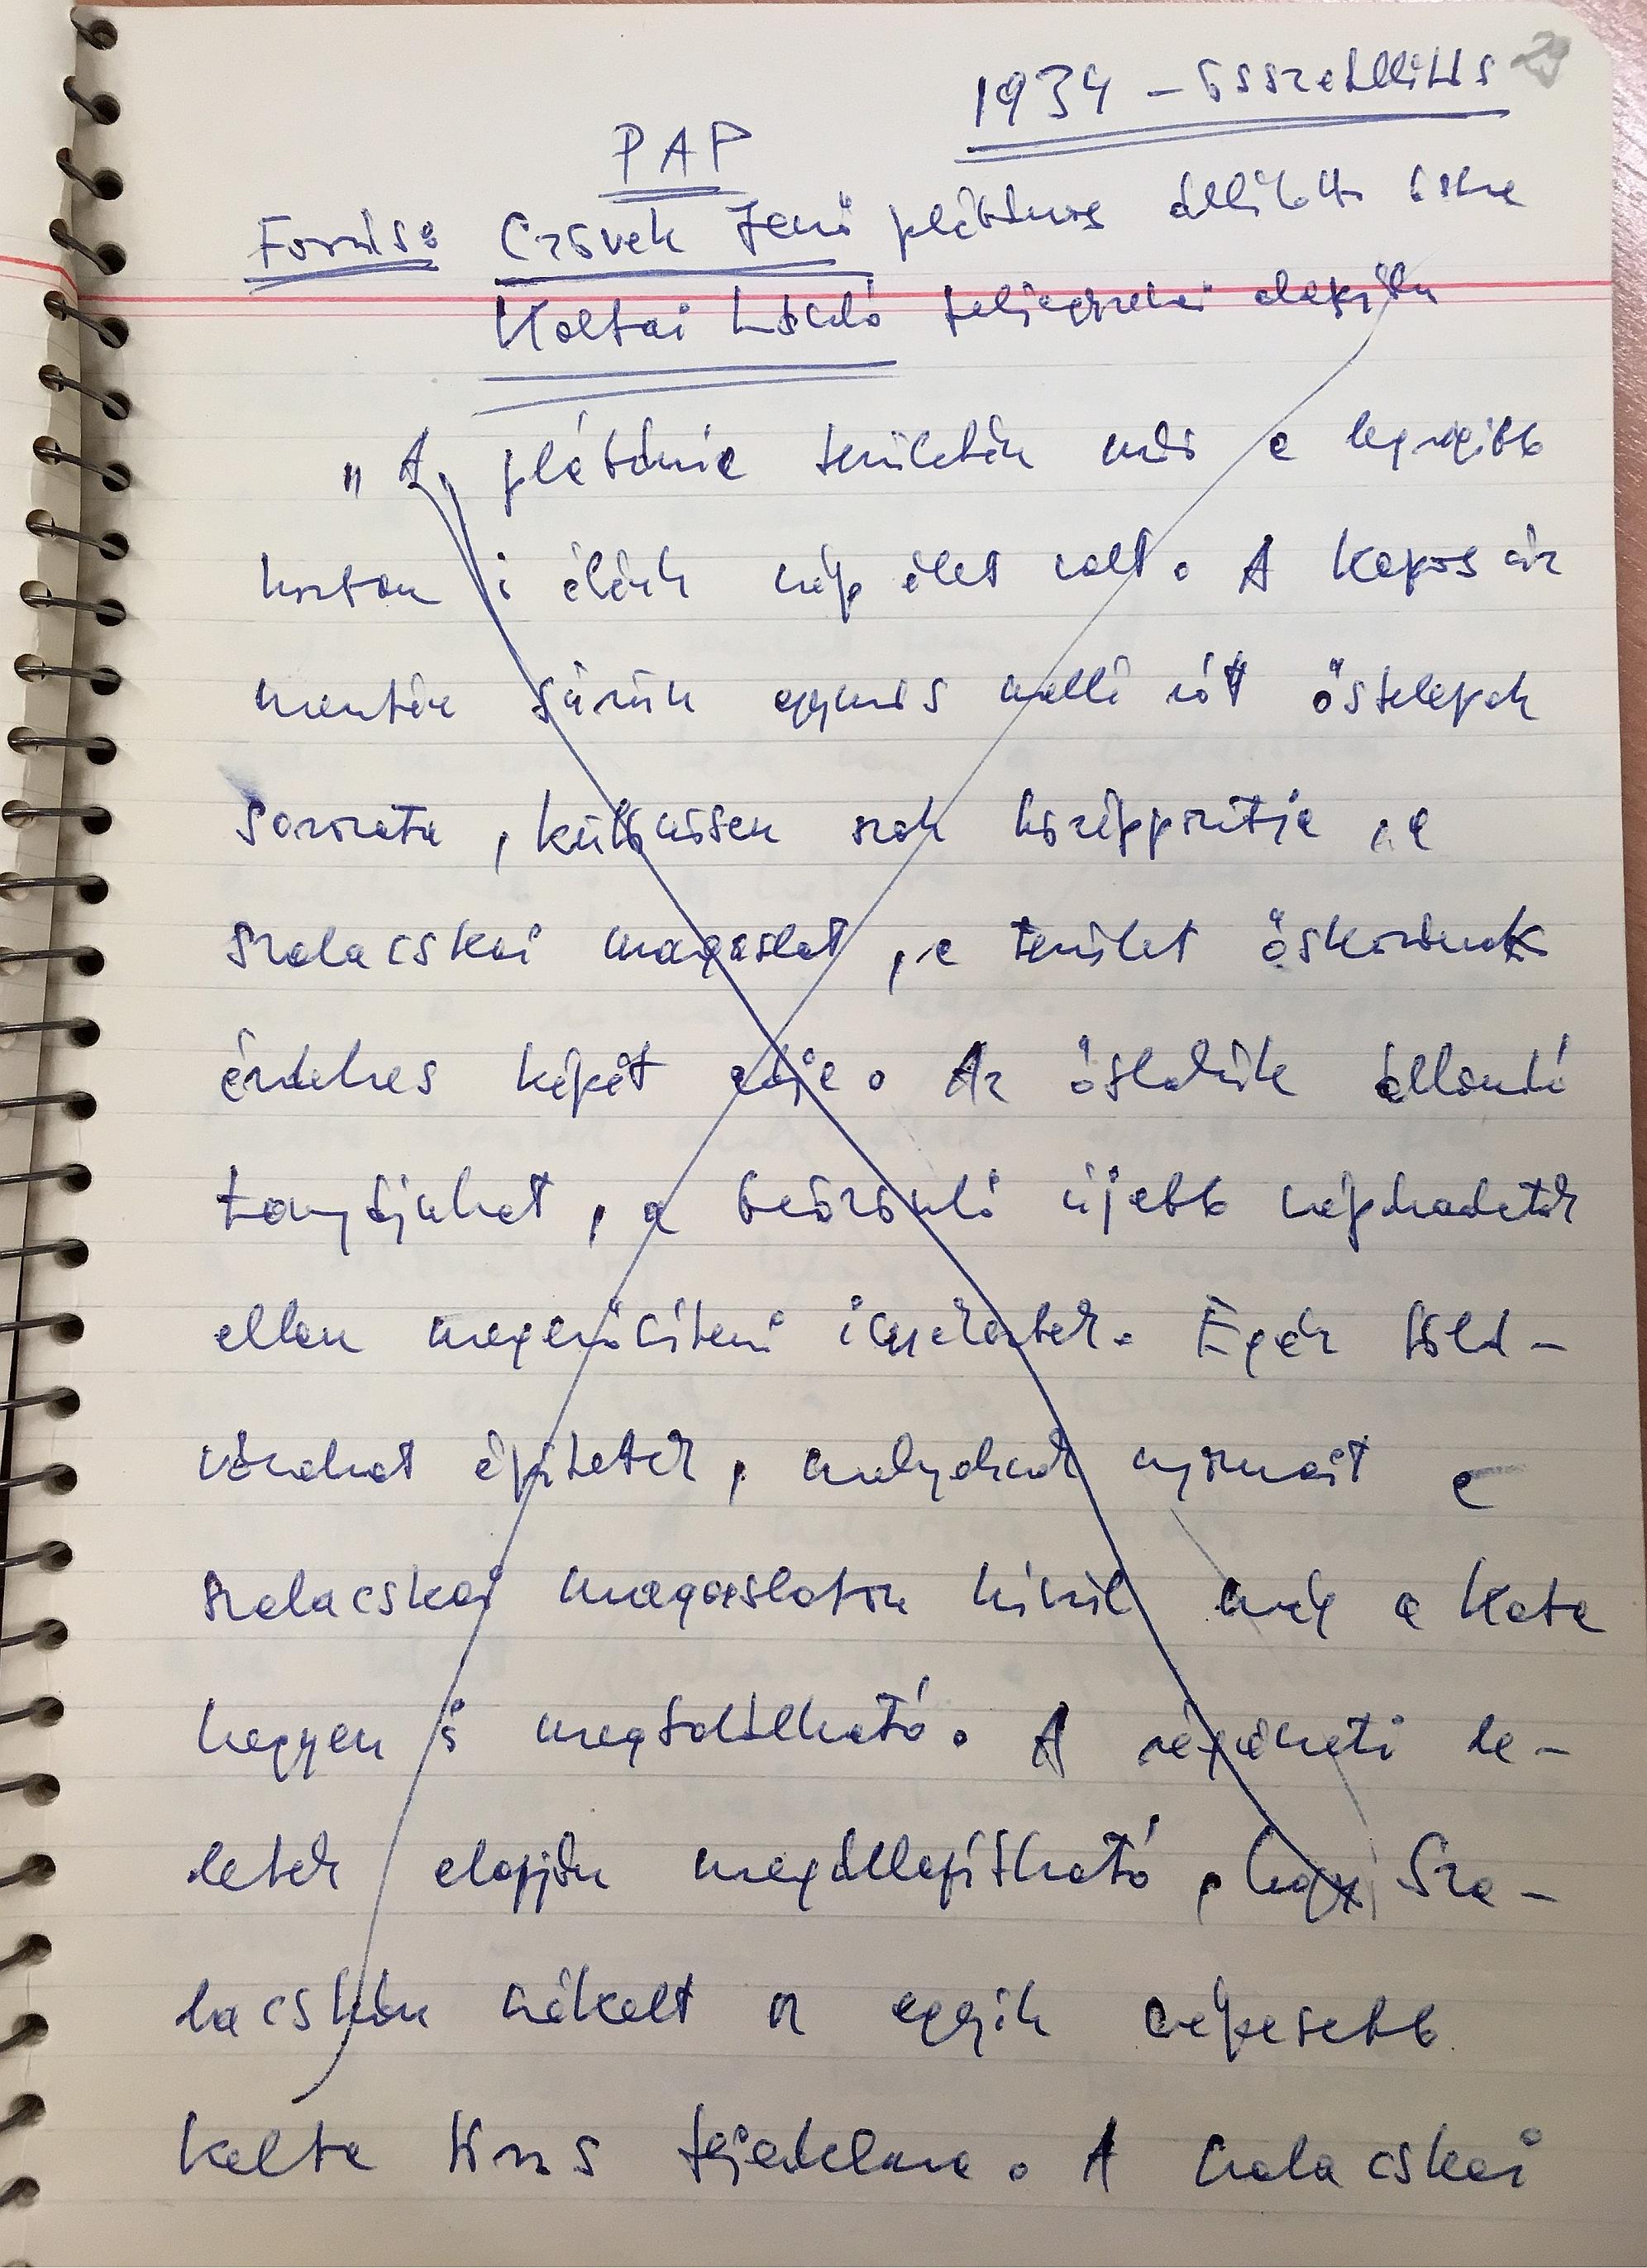 29
1934 – összeállítás
PAP
Forrás: Czövek Jenő plébános állította össze
Koltai László feljegyzései alapján
„A plébánia területén már a legrégibb
korban is élénk nép élet volt. A Kapos víz
mentén sűrűn egymás mellé rótt őstelepek
sorozata, különösen ezek középpontja, a
szalacskai magaslat, a terület őskorának
érdekes képét adja. Az őslakók állandó
tanyájukat, a beözönlő újabb néphadak
ellen megerősíteni igyekeztek. Egész föld-
várakat építettek, melyeknek nyomait a
szalacskai magaslaton kívül még a Kata
hegyen is megtalálható. A régészeti le-
letek alapján megállapítható, hogy Sza-
lacskán székelt az egyik népesebb
kelta törzs fejedelme. A szalacskai